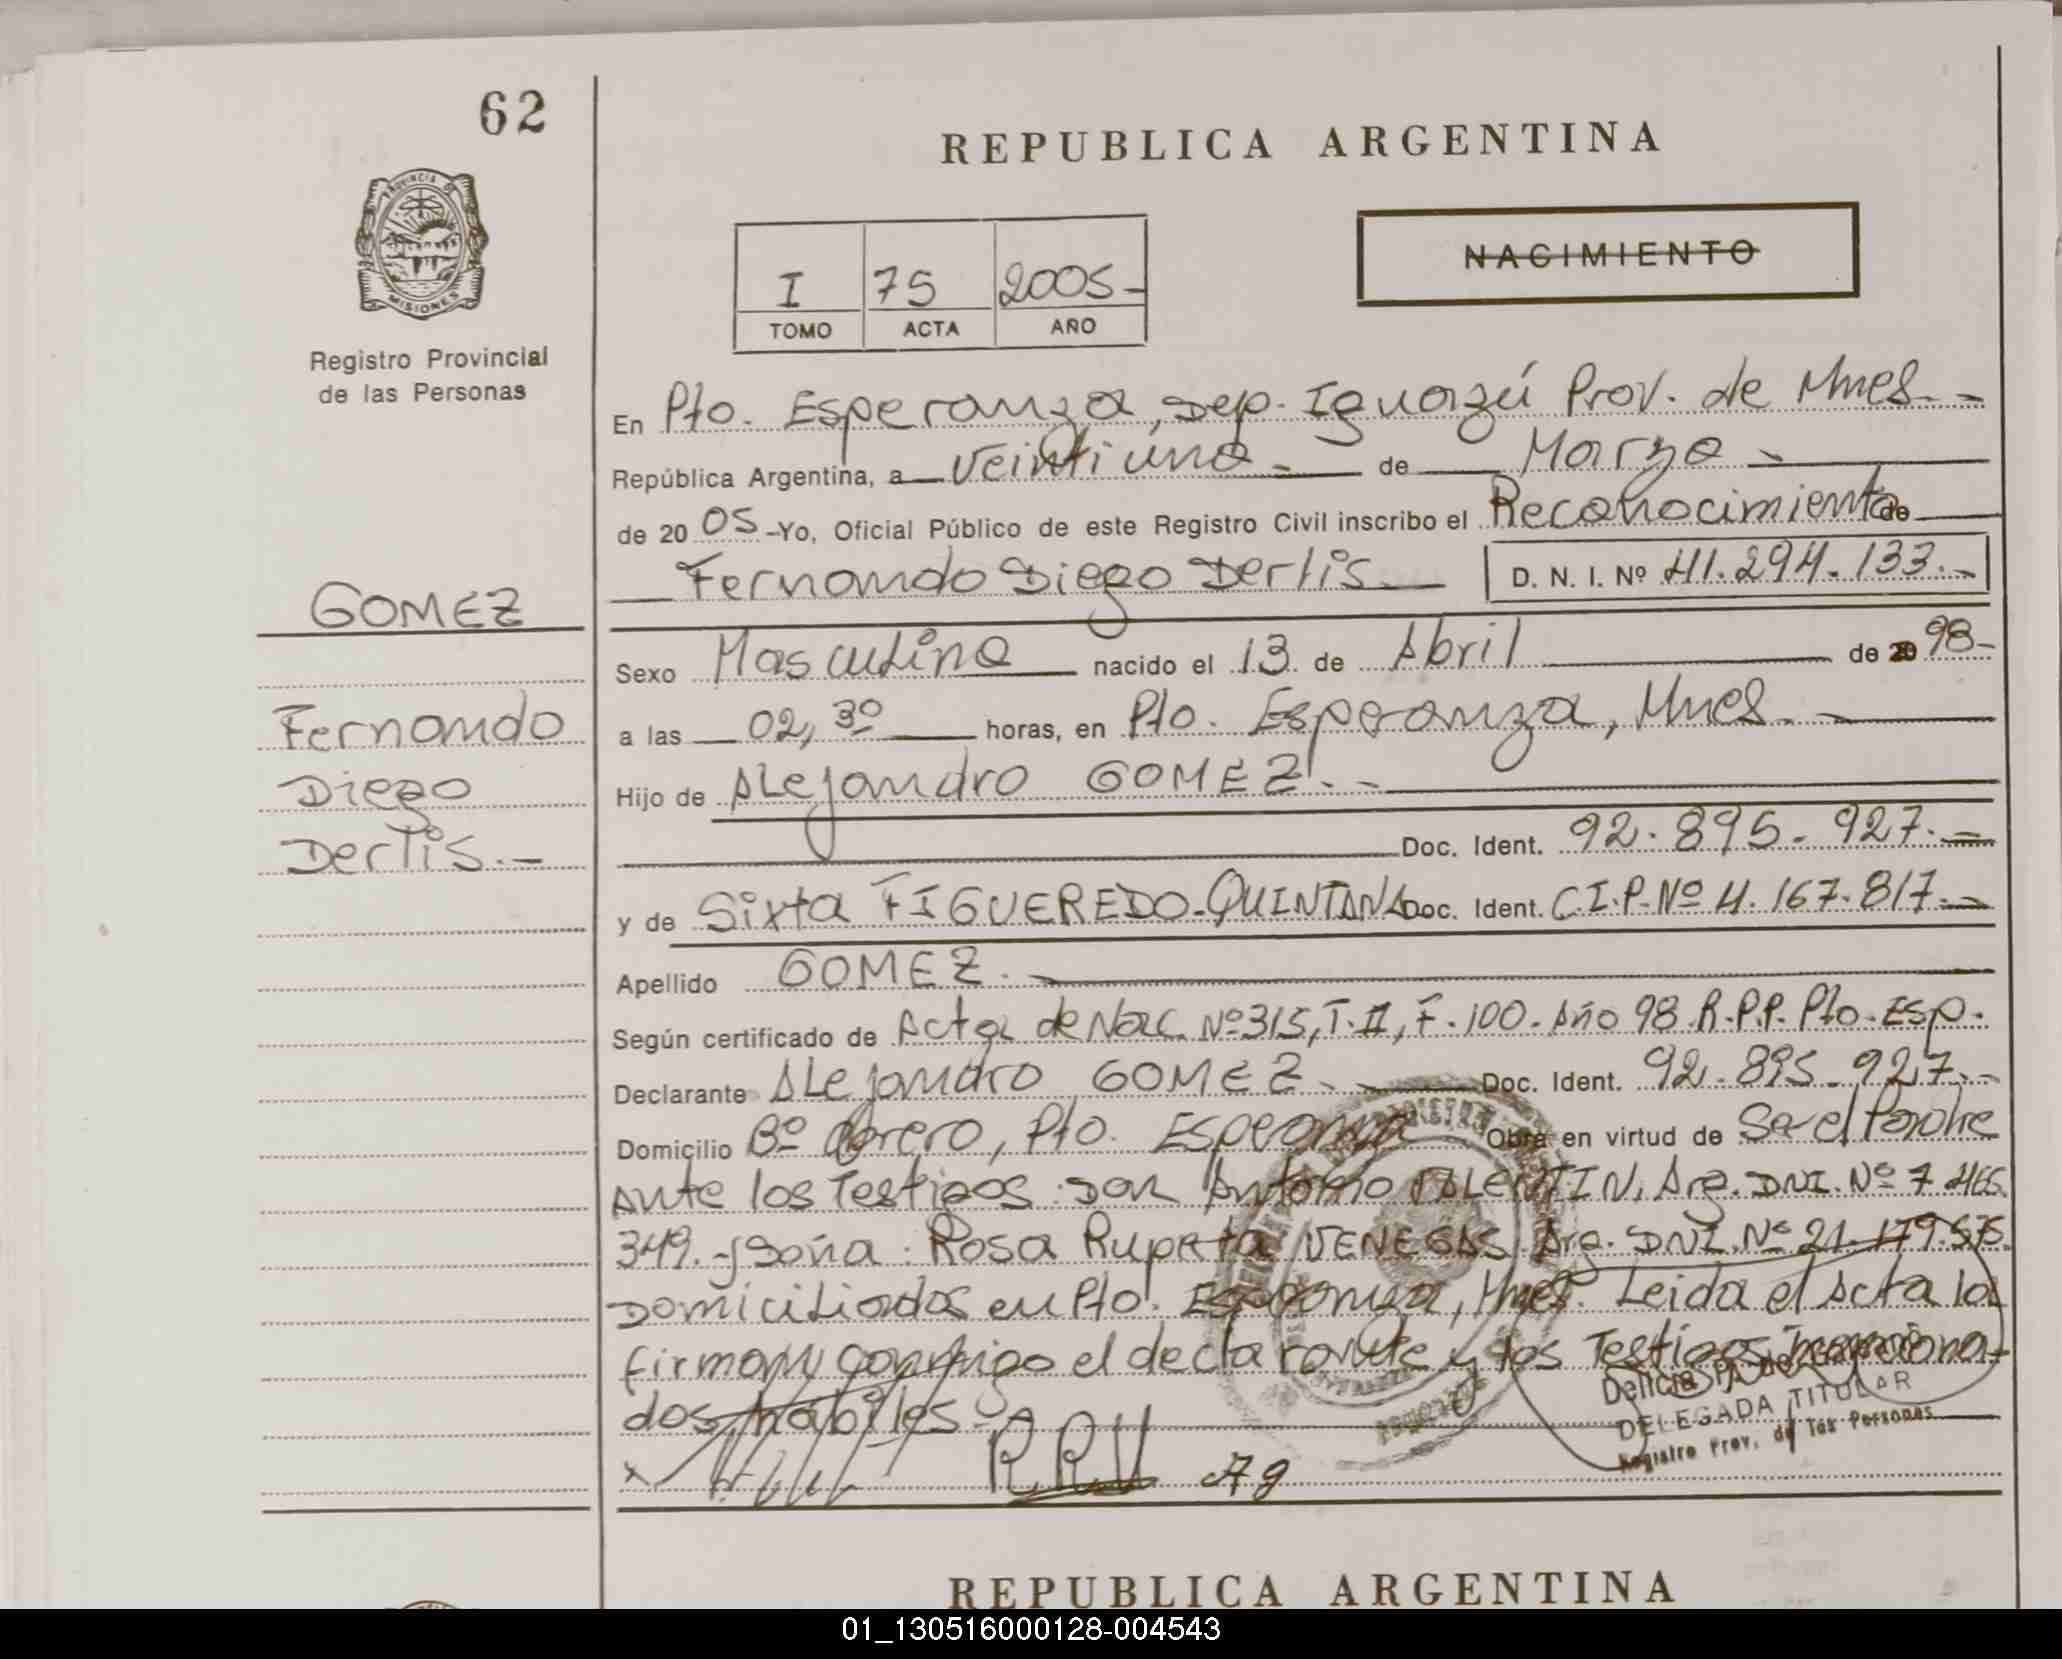 62
REPUBLICA ARGENTINA
PROVINCIA DE
MISIONES
Registro Provincial
de las Personas
NACIMIENTO
I 75 2005-
TOMO ACTA AÑO
En Pto. Esperanza, Dep. Iguazú Prov. de Mnes.-
República Argentina, a veintiuno - de Marzo -
de 2005 -Yo, Oficial Público de este Registro Civil inscribo el Reconocimiento de
Fernando Diego Dertis D. N. I. Nº 41.294.133.-
GOMEZ
Fernando
Diego
Dertis.-
Sexo Masculino nacido el 13 de Abril de 98-
a las 02,30 horas, en Pto. Esperanza, Mnes.-
Hijo de ALejandro GOMEZ.-
Doc. Ident. 92.895.927.-
y de Sixta FIGUEREDO-QUINTANA Doc. Ident. C.I.P. Nº 4.167.817.-
Apellido GOMEZ.-
Según certificado de Acta de Nac. Nº 315, T. II, F. 100- Año 98 R.P.P. Pto. Esp.
Declarante ALejandro GOMEZ.- Doc. Ident. 92.895.927.-
Domicilio Bº Obrero, Pto. Esperanza Obra en virtud de Se el Padre
Ante los Testigos: Don Antonio Arg. DNI. Nº 7.466.
349.- y Doña: Rosa Ruperta VENEGAS Arg. DNI. Nº 21.179.575
Domiciliados en Pto. Esperanza, Mnes. Leida el Acta la
firman conmigo el declarante y los Testigos menciona-
dos habiles.-
Delicia
DELEGADA TITULAR
Registro Prov. de las Personas
R.R.V A g
REPUBLICA ARGENTINA
01_130516000128-004543